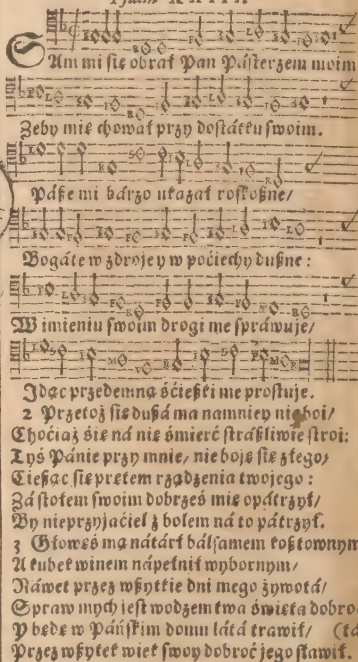 Psalm XXIII.
SAm mi się obrał Pan Pásterzem moim
Zeby mię chował przy dostátku swoim.
Páße mi bárzo ukazał roskoßne/
Bogáte w zdroje y w pociechy dußne:
W imieniu swoim drogi me spráwuje/
Idąc przedemną ścießki me prostuje.
2 Przetoż się dußá ma namniey nie boi/
Chociaż śię ná nię śmierć stráßliwie stroi:
Tyś Pánie przy mnie/ nie boję się złego/
Cießąc się prętem rządzenia twojego:
Zá stołem swoim dobrześ mię opátrzył/
By nieprzyjaćiel z bolem ná to pátrzył.
3 Głowęś mą nátárł bálsamem kosztownym
A kubek winem nápełnił wybornym/
Náwet przez wßytkie dni mego żywotá/
Spraw mych jest wodzem twa święta dobro- (tá
Y będę w Páńskim domu látá trawił/
Przez wßytek wiek swoy dobroć jego sławił.